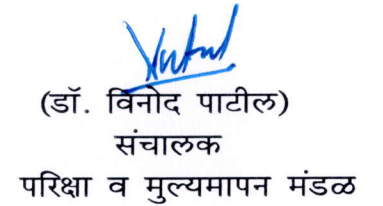 (डॉ. विनोद पाटील)
संचालक
परिक्षा व मुल्यमापन मंडळ